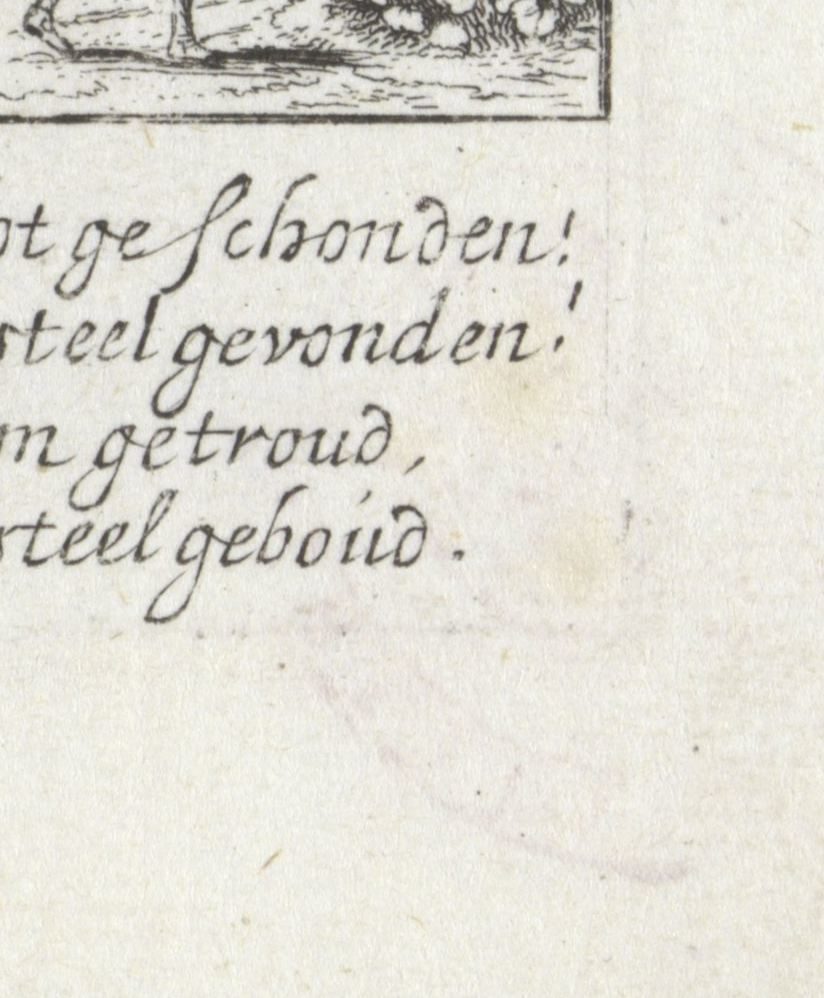 ot geschonden!
steel gevonden!
m getroud,
steel geboud.